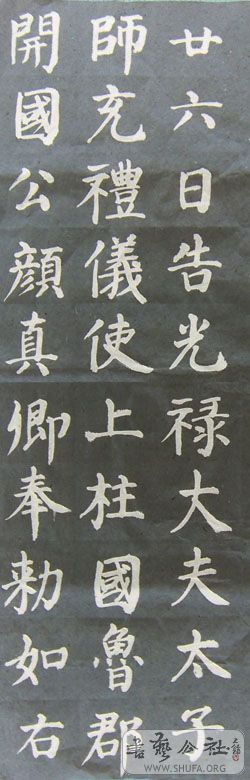 廿六日告光禄大夫太子
師充禮儀使上柱國魯郡
開國公顔真卿奉勑如右
書藝公社
WWW.SHUFA.ORG